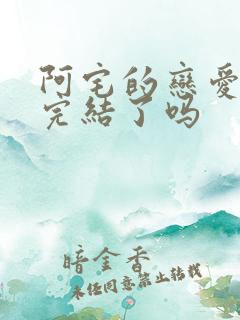 阿宅的戀愛
完結了吗
暗金香
未经同意禁止转载